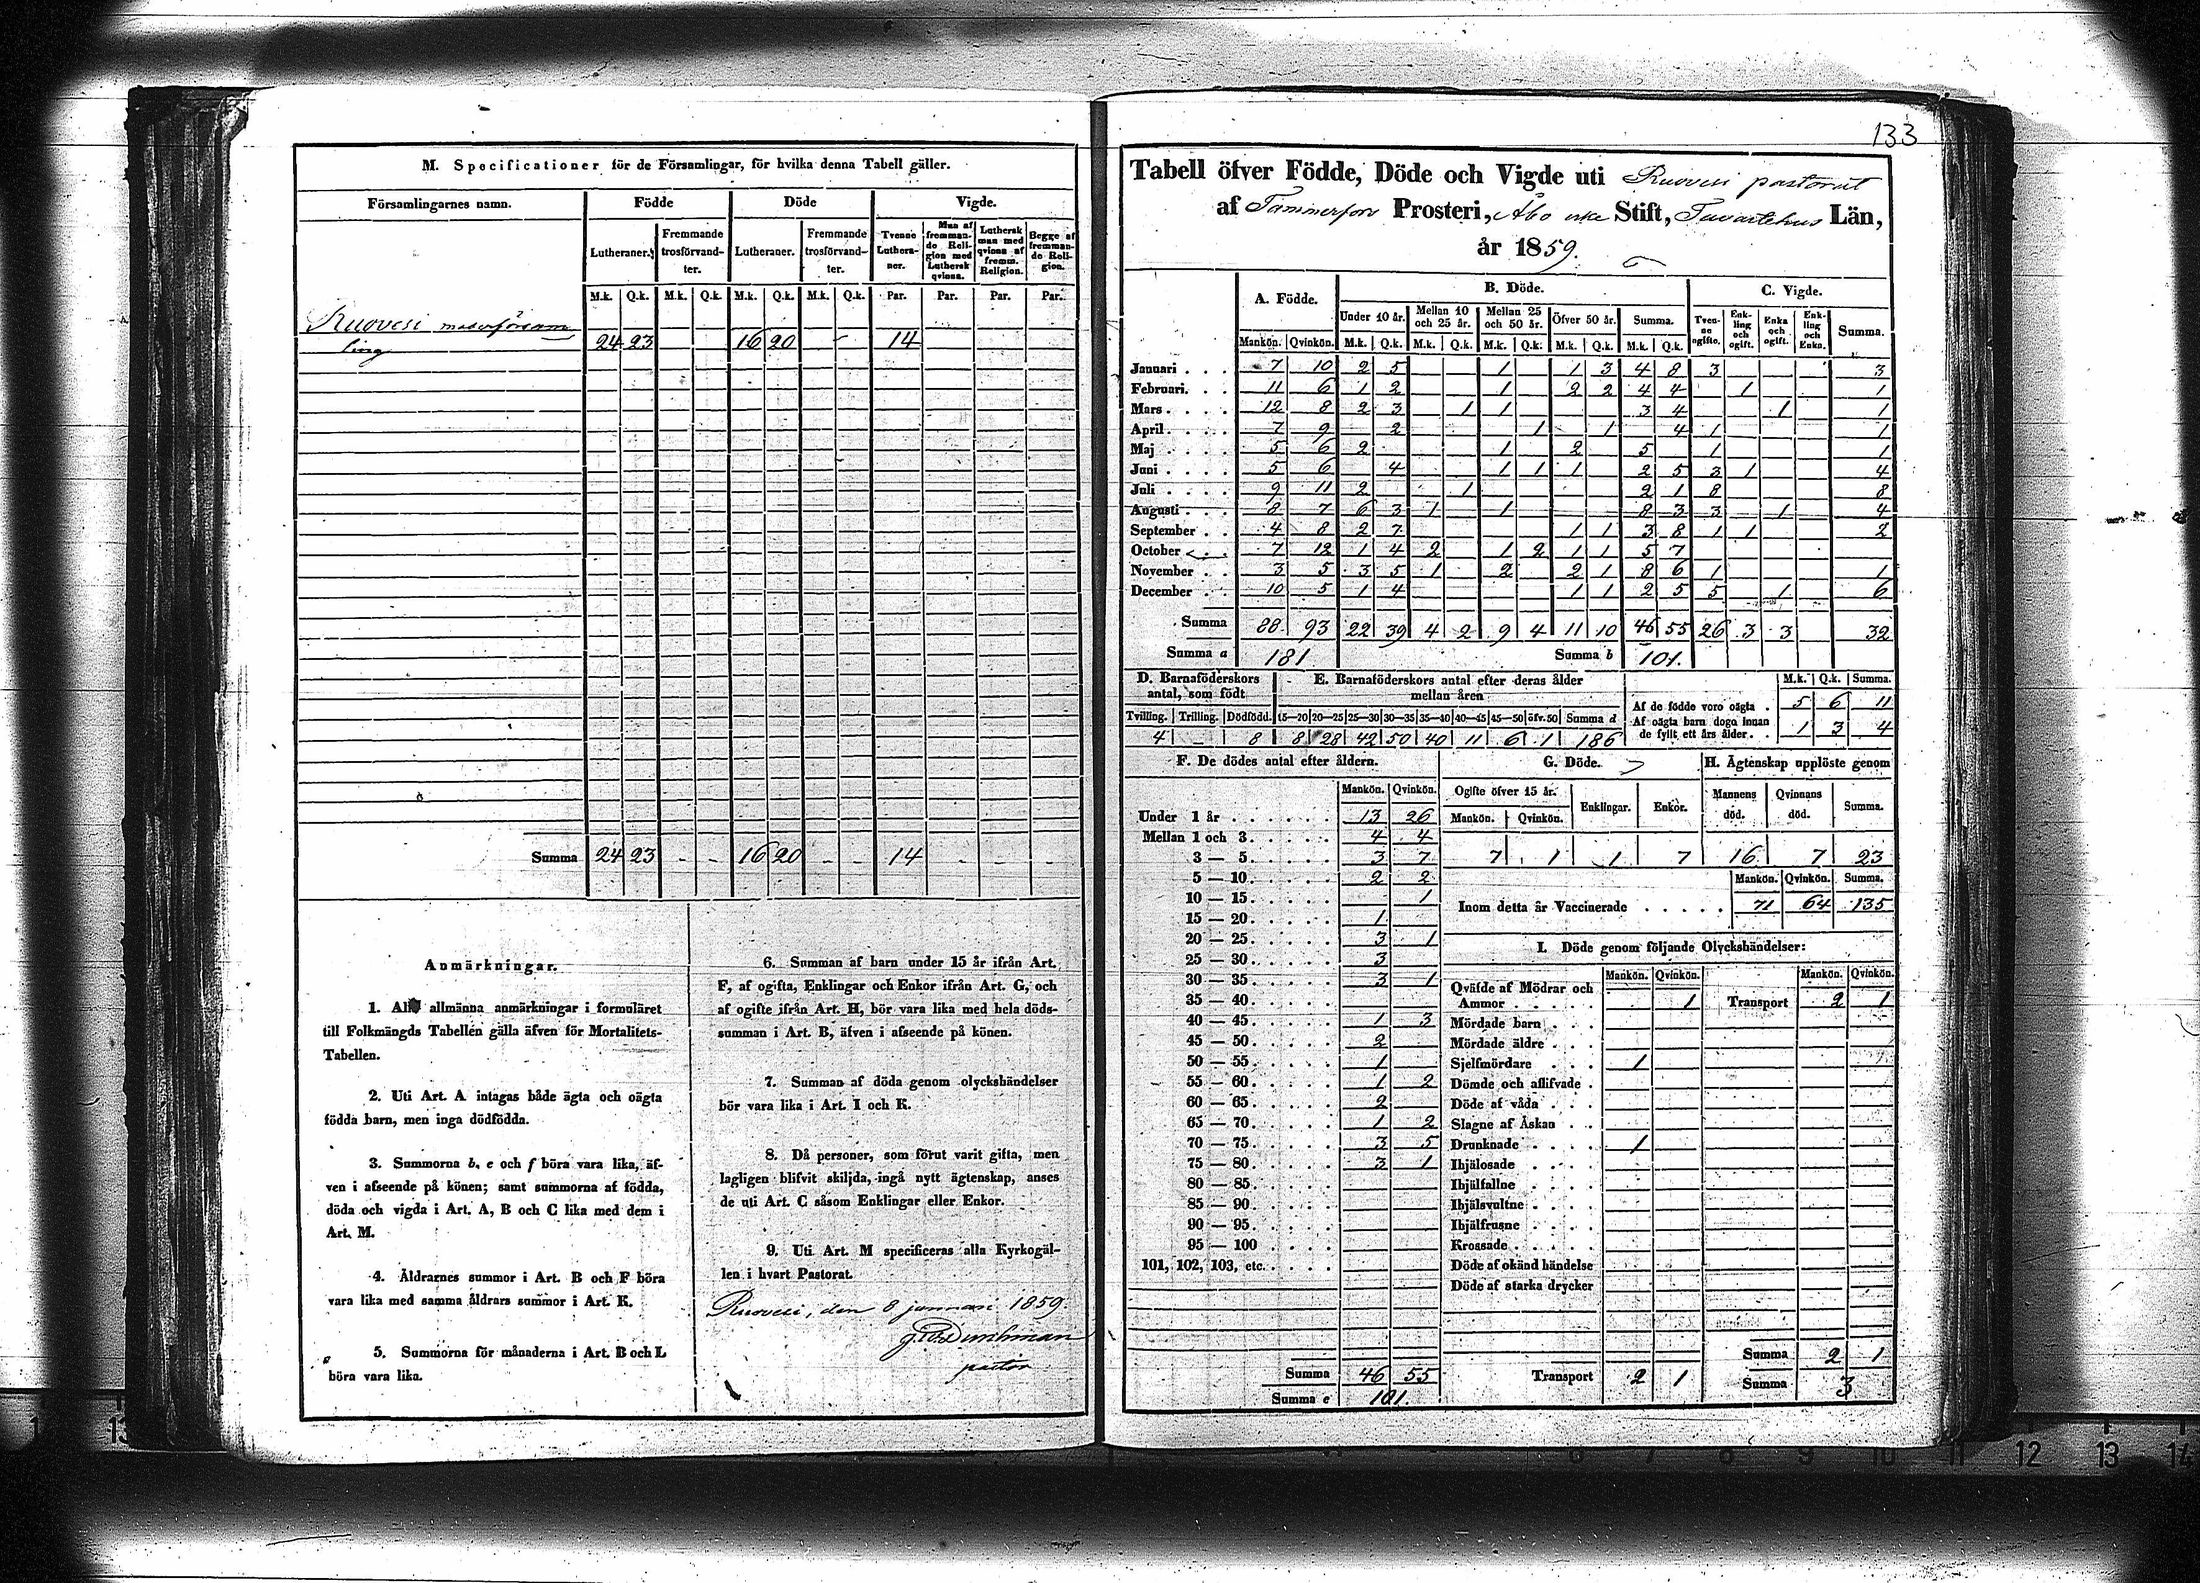 M. Specificationer för de Församlingar, för hvilka denna Tabell gäller.
Församlingarnes namn. Födde Döde Vigde.
Lutheraner. Fremmande trosförvandter. Lutheraner. Fremmande trosförvandter. Tvenne Lutheraner. Man af fremmande Religion med Luthersk qvinna. Luthersk man med qvinna af fremm. Religion. Begge af fremmande Religion.
M.k. Q.k. M.k. Q.k. M.k. Q.k. M.k. Q.k. Par. Par. Par. Par.
Ruovesi moderförsam
ling 24 23 16 20 - 14
Summa 24 23 - - 16 20 - - 14 - - -
Anmärkningar.
1. Alla allmänna anmärkningar i formuläret
till Folkmängds Tabellen gälla äfven för Mortalitets-
Tabellen.
2. Uti Art. A intagas både ägta och oägta
födda barn, men inga dödfödda.
3. Summorna b, e och f böra vara lika, äf-
ven i afseende på könen; samt summorna af födda,
döda och vigda i Art. A, B och C lika med dem i
Art. M.
4. Åldrarnes summor i Art. B och F böra
vara lika med samma åldrars summor i Art. K.
5. Summorna för månaderna i Art. B och L
böra vara lika.
6. Summan af barn under 15 år ifrån Art.
F, af ogifta, Enklingar och Enkor ifrån Art. G, och
af ogifte ifrån Art. H, bör vara lika med hela döds-
summan i Art. B, äfven i afseende på könen.
7. Summan af döda genom olyckshändelser
bör vara lika i Art. I och K.
8. Då personer, som förut varit gifta, men
lagligen blifvit skiljda, ingå nytt ägtenskap, anses
de uti Art. C såsom Enklingar eller Enkor.
9. Uti Art. M specificeras alla Kyrkogäl-
len i hvart Pastorat.
Ruovesi, den 8 januari 1859.
pastor
133
Tabell öfver Födde, Döde och Vigde uti Ruovesi pastorat
af Tammerfors Prosteri, Åbo Stift, Tavastehus Län,
år 1859.
A. Födde. B. Döde. C. Vigde.
Under 10 år. Mellan 10 och 25 år. Mellan 25 och 50 år. Öfver 50 år. Summa. Tvenne ogifte. Enkling och ogift. Enka och ogift. Enkling och Enka. Summa.
Mankön. Qvinkön. M.k. Q.k. M.k. Q.k. M.k. Q.k. M.k. Q.k. M.k. Q.k.
Januari . . . 7 10 2 5 1 1 3 4 8 3 3
Februari. . . 11 6 1 2 1 2 2 4 4 1 1
Mars . . . . 12 8 2 3 1 1 3 4 1 1
April . . . . 7 9 2 1 1 4 1 1
Maj . . . . 5 6 2 1 2 5 1 1
Juni . . . . 5 6 4 1 1 1 2 5 3 1 4
Juli . . . . 9 11 2 1 2 1 8 8
Augusti . . . 8 7 6 3 1 1 8 3 3 1 4
September . . 4 8 2 7 1 1 3 8 1 1 2
October . . 7 12 1 4 2 1 2 1 1 5 7
November . . 3 5 3 5 1 2 2 1 8 6 1 1
December . . 10 5 1 4 1 1 2 5 5 1 6
Summa 88 93 22 39 4 2 9 4 11 10 46 55 26 3 3 32
Summa a 181 Summa b 101.
D. Barnaföderskors antal, som födt E. Barnaföderskors antal efter deras ålder mellan åren M.k. Q.k. Summa.
Af de födde voro oägta . 5 6 11
Af oägta barn dogo innan
de fyllt ett års ålder . . 1 3 4
Tvilling. Trilling. Dödfödd. 15—20 20—25 25—30 30—35 35—40 40—45 45—50 öfv.50 Summa d
4 - 8 8 28 42 50 40 11 6 1 186
F. De dödes antal efter åldern.
Mankön. Qvinkön.
Under 1 år . . . . . . 13 26
Mellan 1 och 3 . . . . . 4 4
3 — 5 . . . . . 3 7
5 — 10 . . . . . 2 2
10 — 15 . . . . . 1
15 — 20 . . . . . 1
20 — 25 . . . . . 3 1
25 — 30 . . . . . 3
30 — 35 . . . . . 3 1
35 — 40 . . . . .
40 — 45 . . . . . 1 3
45 — 50 . . . . . 2
50 — 55 . . . . . 1
55 — 60 . . . . . 1 2
60 — 65 . . . . . 2
65 — 70 . . . . . 1 2
70 — 75 . . . . . 3 5
75 — 80 . . . . . 3 1
80 — 85 . . . . .
85 — 90 . . . . .
90 — 95 . . . . .
95 — 100 . . . .
101, 102, 103, etc. . . . .
Summa 46 55
Summa e 101.
G. Döde. H. Ägtenskap upplöste genom
Ogifte öfver 15 år. Enklingar. Enkor. Mannens död. Qvinnans död. Summa.
Mankön. Qvinkön.
7 1 1 7 16 7 23
Mankön. Qvinkön. Summa.
Inom detta år Vaccinerade . . . . . 71 64 135
I. Döde genom följande Olyckshändelser:
Mankön. Qvinkön. Mankön. Qvinkön.
Qväfde af Mödrar och
Ammor . . . . . 1 Transport 2 1
Mördade barn . . .
Mördade äldre . . .
Sjelfmördare . . . 1
Dömde och aflifvade .
Döde af våda . . .
Slagne af Åskan . .
Drunknade . . . . 1
Ihjälosade . . . .
Ihjälfallne . . . .
Ihjälsvultne . . . .
Ihjälfrusne . . . .
Krossade . . . . .
Döde af okänd händelse
Döde af starka drycker
Summa 2 1
Transport 2 1 Summa 3
6 7 8 9 10 11 12 13 14